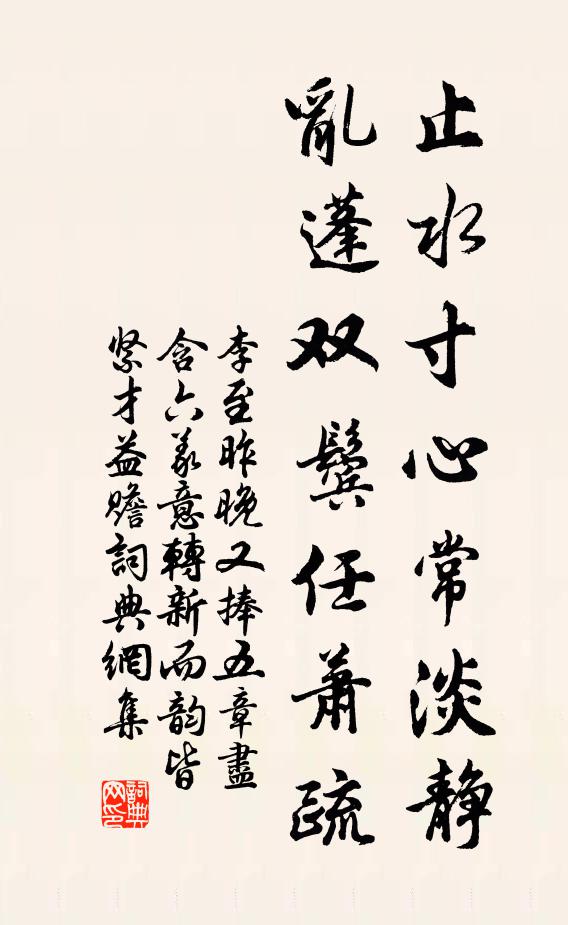 止水寸心常淡静
亂蓬双鬓任蕭疏
李至昨晚又捧五章盡
含六義意轉新而韵皆
紧才益赡詞典網集
詞典网印